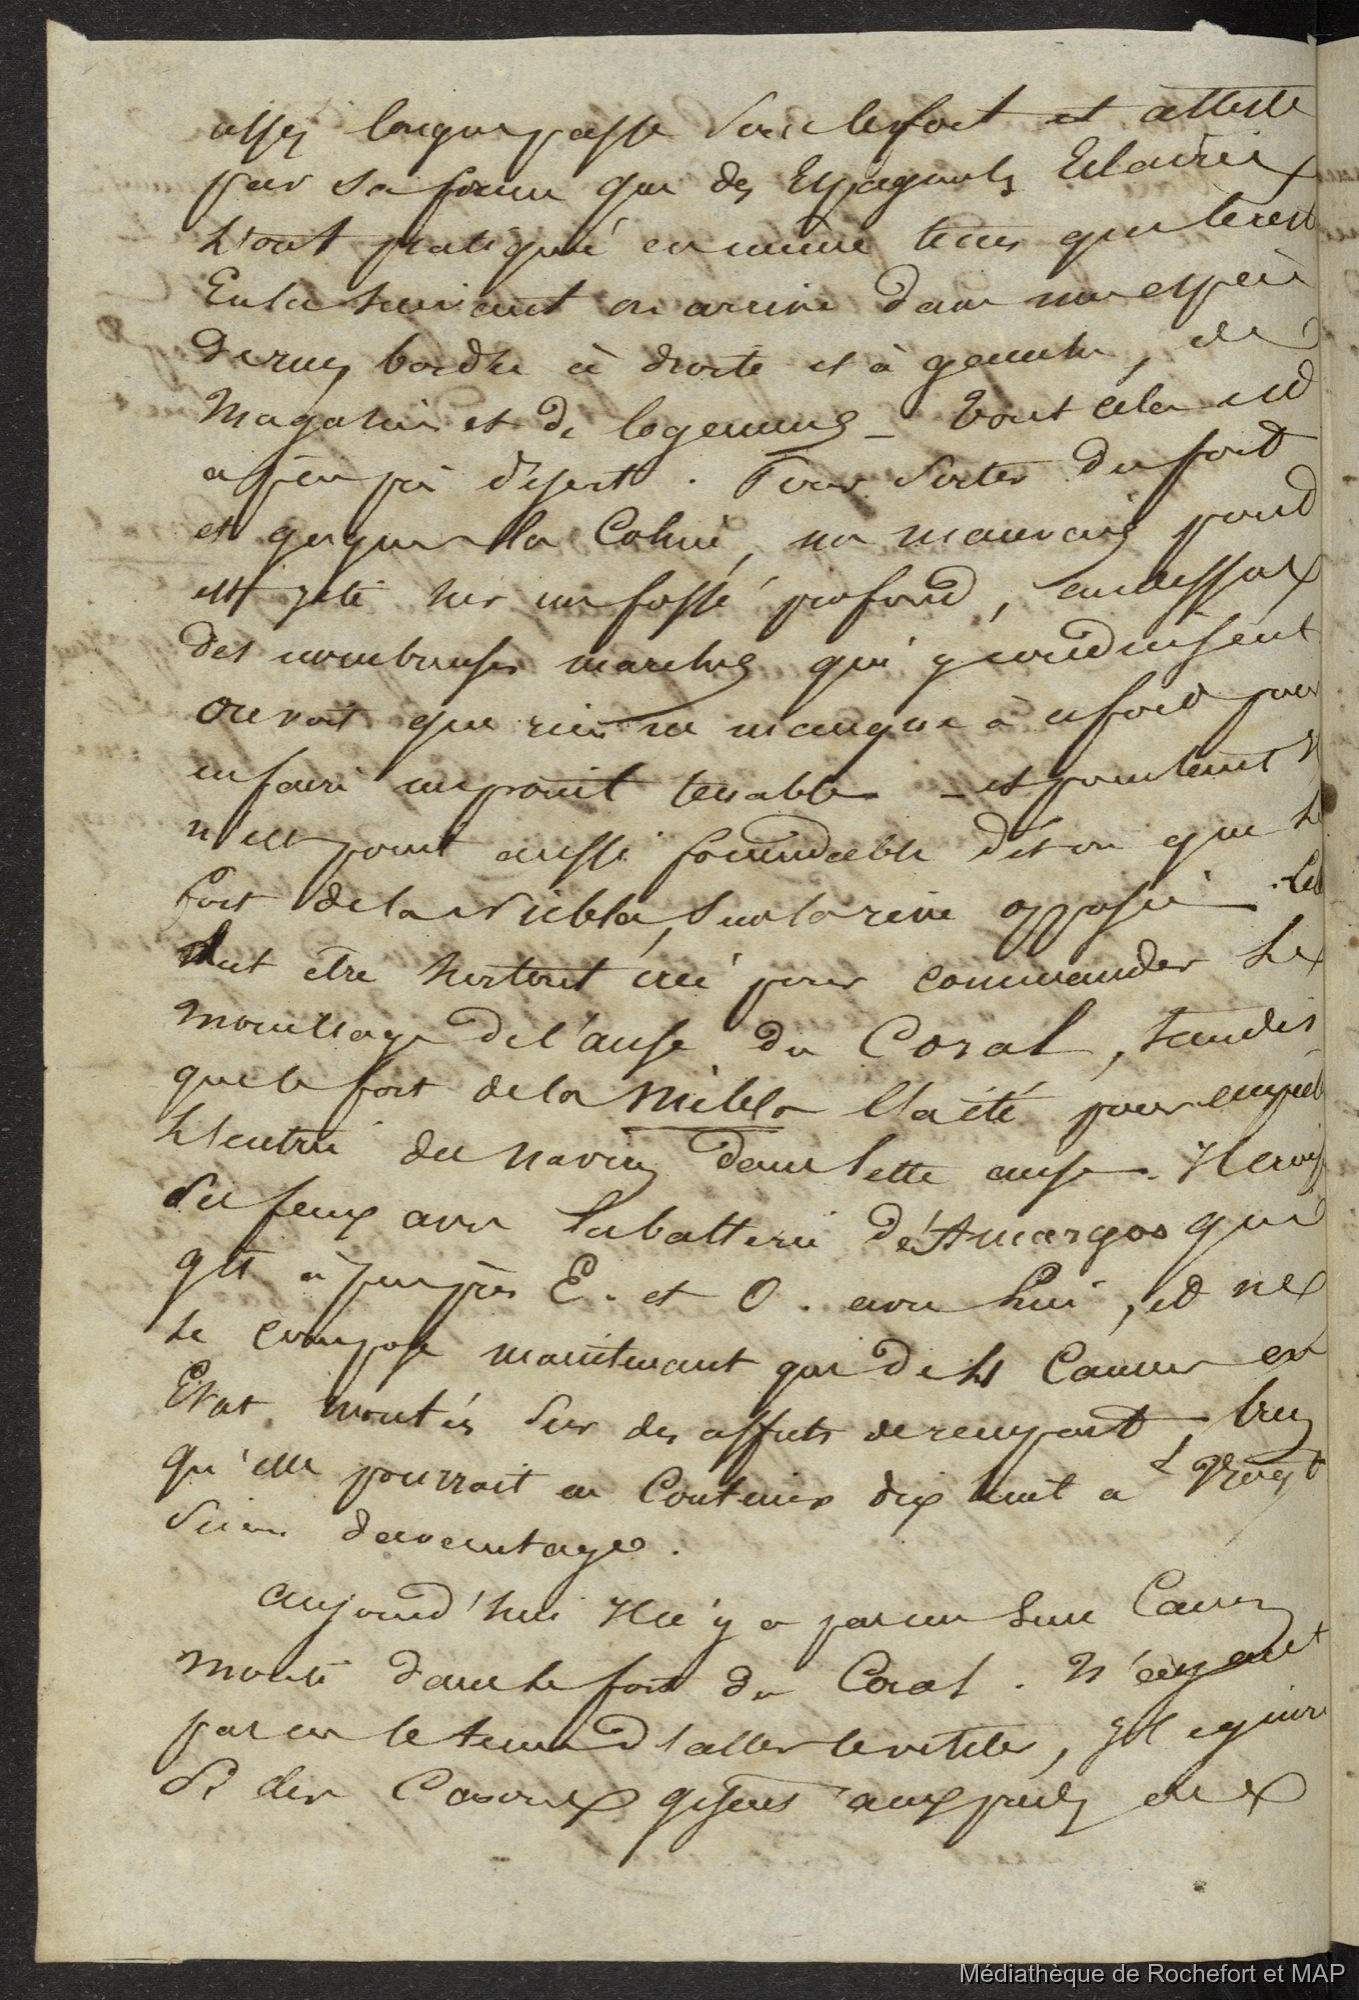 assez longue passe sous le fort et atteste
par sa forme que des Espagnols Eclairés
l'ont pratiqué en même tems que le reste
En la suivant on arrive dans une espèce
de rue, bordée à droite et à gauche, de
Magasins et de logemens _ Tout cela est
a peu près désert. Pour sortir du fort
et gagner la Coline, un mauvais pont
est jeté sur un fossé profond, au dessus
des nombreuses marches qui y conduisent
on voit que rien ne manque à ce fort pour
en faire un point tenable _ et pourtant il
n'est point aussi formidable dit on que le
fort de la Niebla, sur la rive opposée. Cel
doit être surtout créé pour commander le
mouillage de l'anse du Coral, tandis
que le fort de la Niebla l'a été pour empech
l'entrée des navires dans cette anse. Il croise
ses feux avec la batterie d'Amargos qui
gît à peu près E. et O. avec lui, et ne
se compose maintenant que de six Canons en
Etat montés sur des affuts de rempart, bien
qu'elle pourrait en Contenir dix huit a vingt
sinon davantage.
aujourd'hui Il n'y a pas un seul Canon
monté dans le fort du Coral. N'ayant
pas eu le tems d'aller le visiter, j'
si des Canons gisent aux pieds des